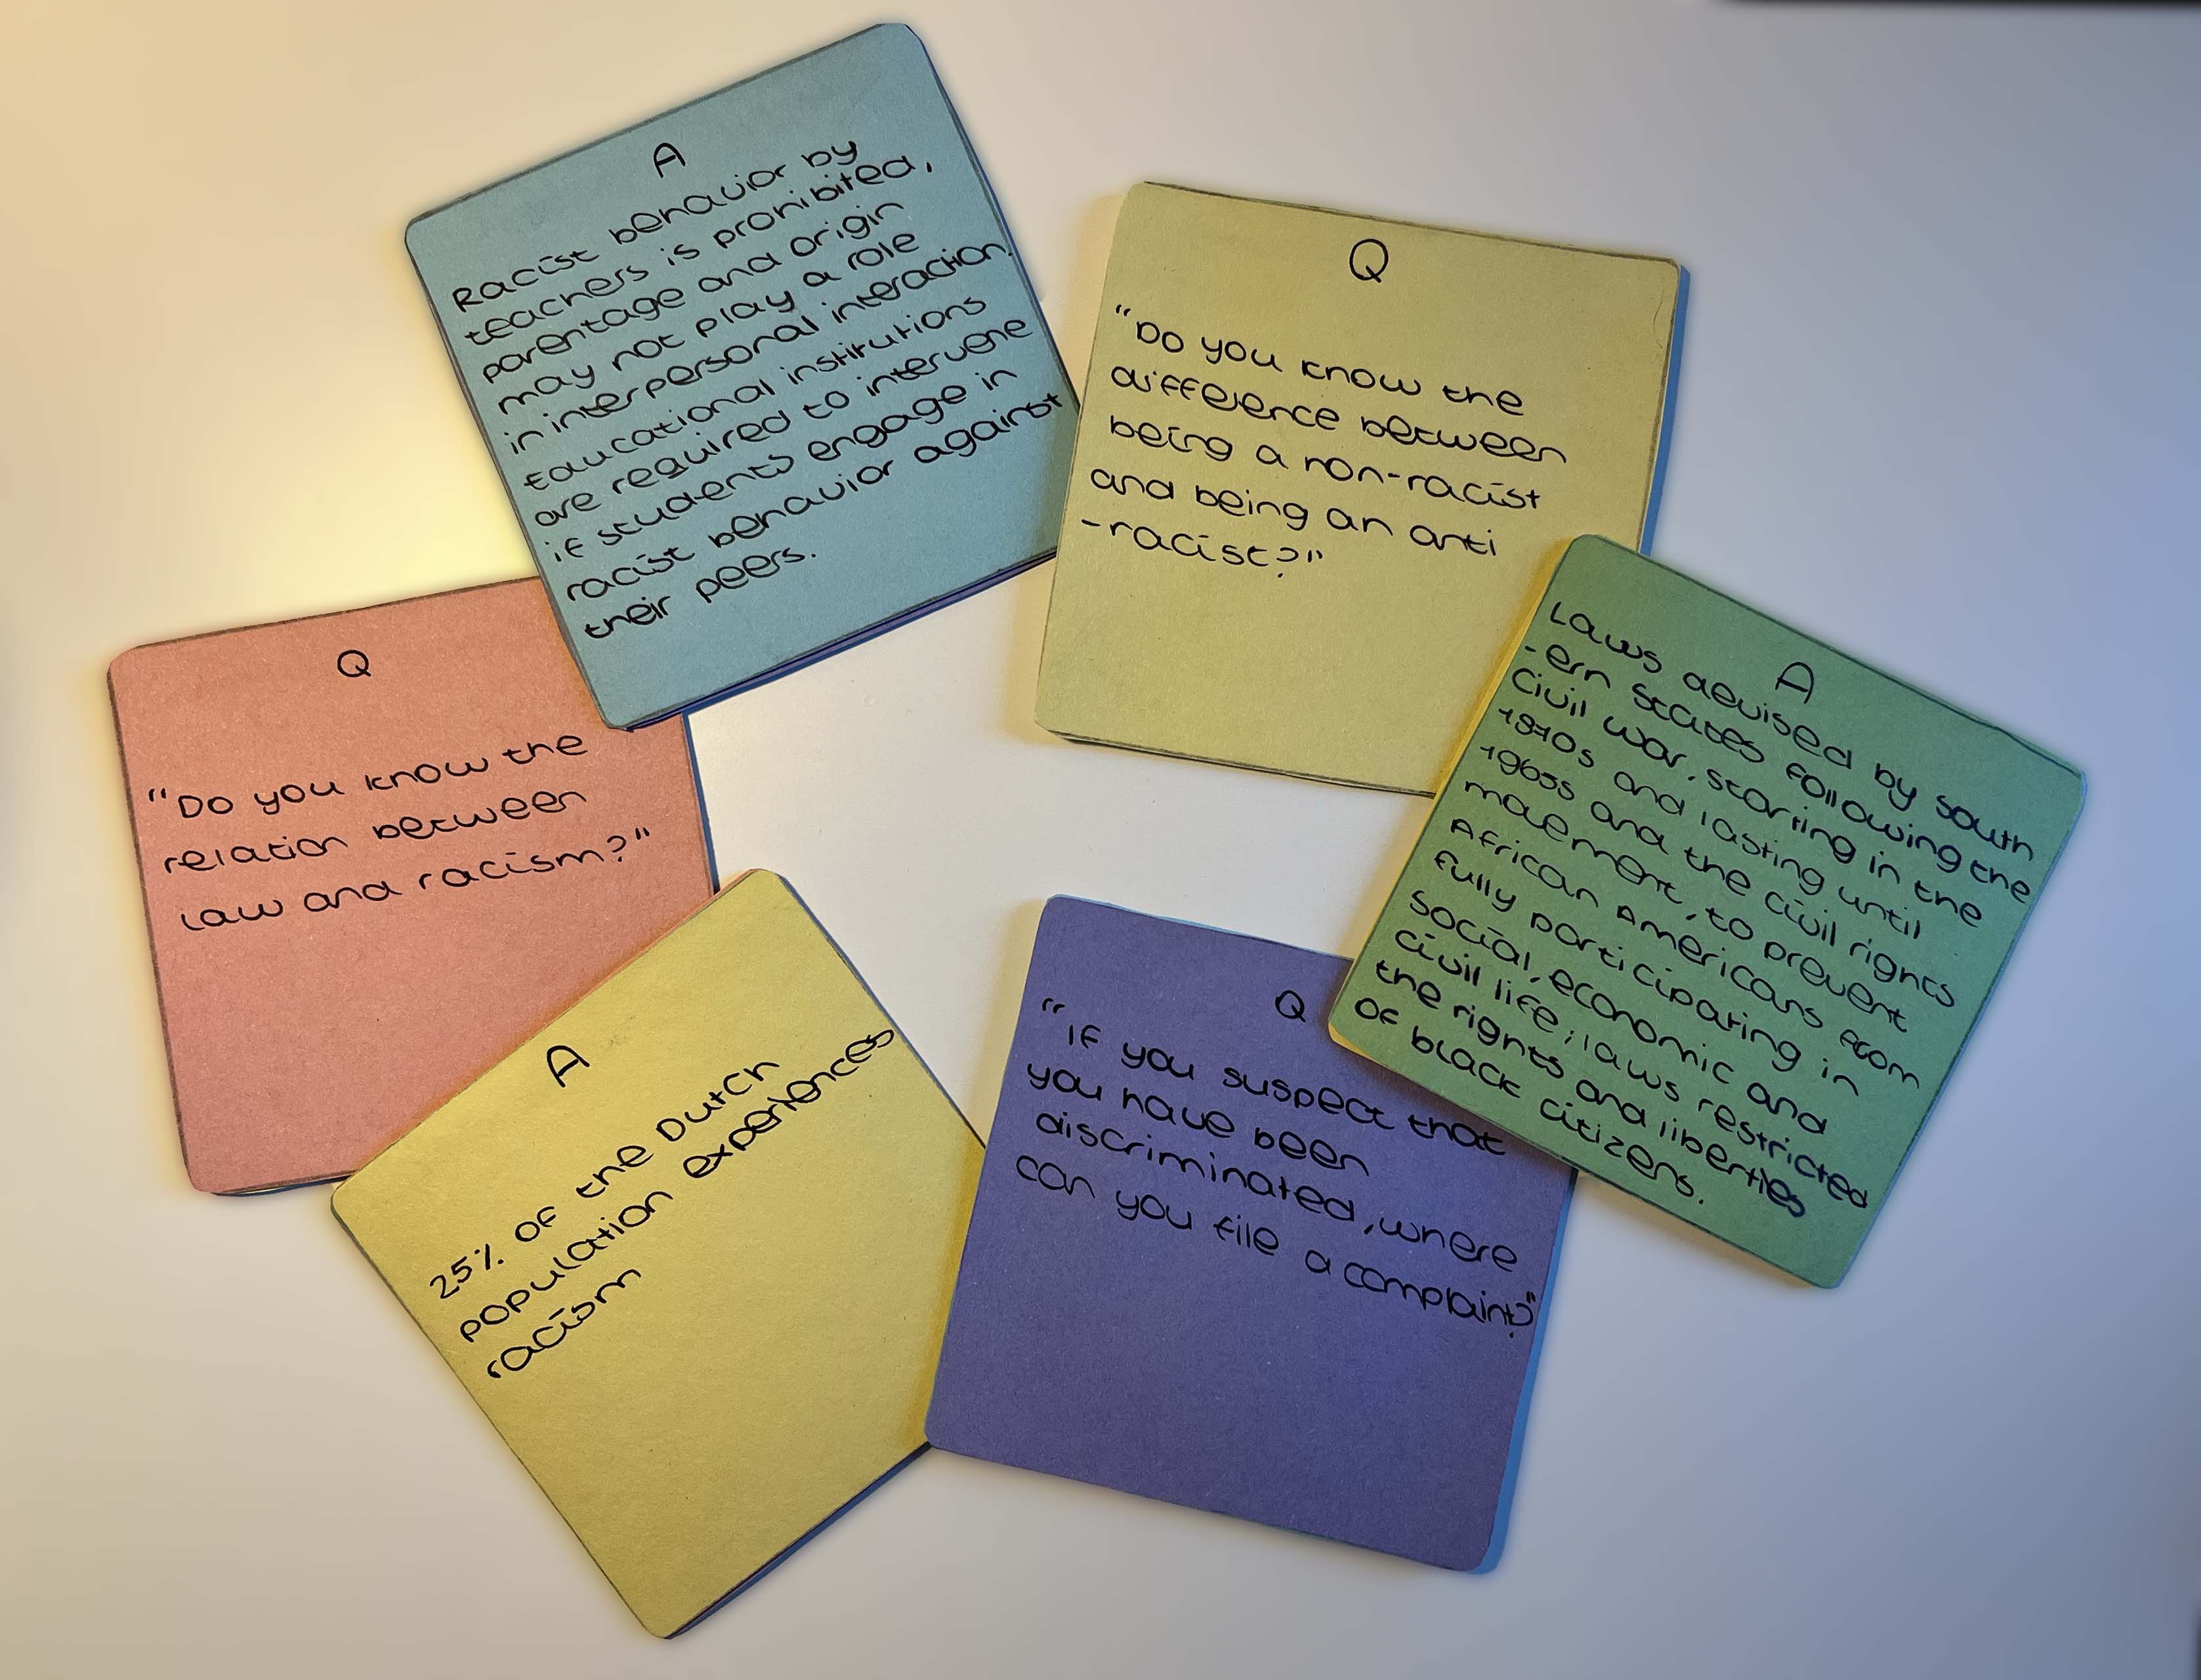 A
Racist behavior by
teachers is prohibited,
parentage and origin
may not play a role
in interpersonal interaction.
Educational institutions
are required to intervene
if students engage in
racist behavior against
their peers.
Q
"Do you know the
difference between
being a non-racist
and being an anti
-racist?"
Q
"Do you know the
relation between
law and racism?"
A
Laws devised by south
-ern states following the
Civil war, starting in the
1870s and lasting until
1960s and the civil rights
movement, to prevent
African Americans from
fully participating in
social, economic and
civil life; laws restricted
the rights and liberties
of black citizens.
A
25% of the Dutch
population experiences
racism
Q
"If you suspect that
you have been
discriminated, where
can you file a complaint?"